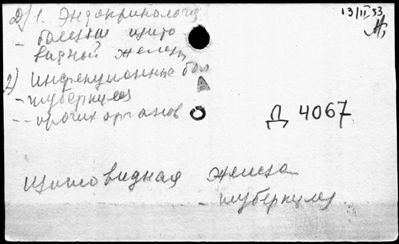 13/II 53
2) 1. Эндокринология
- болезни щито
видной железы
2) Инфекционные бол
- туберкулез
-- прочих органов
Д 4067
Щитовидная железа
- туберкулез